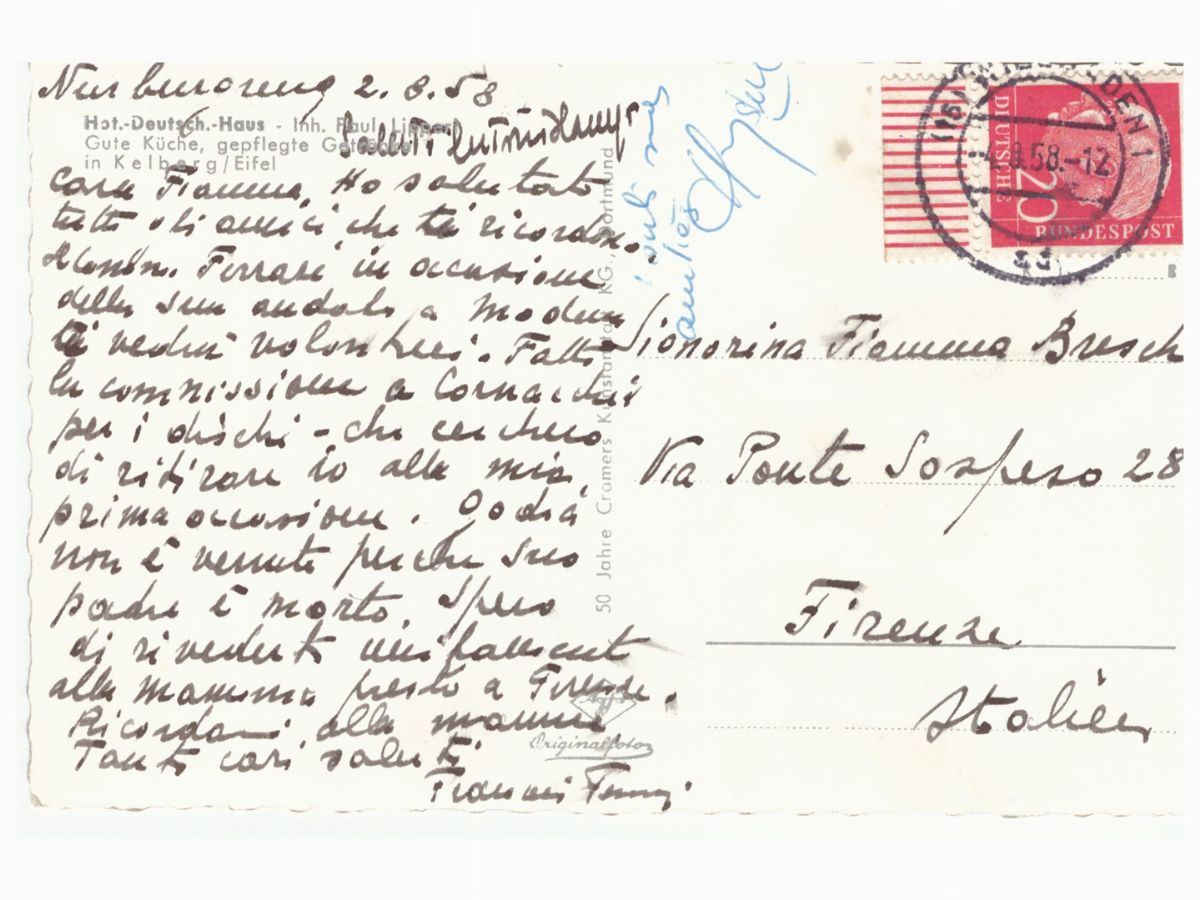 Nurburgring 2.8.58
Hot.-Deutsch.-Haus - Inh. Paul
Gute Küche, gepflegte
in Kelberg/Eifel
Saluti
cara Fiamma, Ho salutato
tutti gli amici che ti ricordano.
Il Comm. Ferrari in occasione
della sua andata a Modena
ti vedrà volentieri. Fatto
la commissione a Cornacchia
per i dischi - che cercherò
di ritirare io alla mia
prima occasione.
non è venuto perché suo
padre è morto. Spero
di rivederti unitamente
alla mamma presto a Firenze.
Ricordami alla mamma
Tanti cari saluti
50 Jahre Cramers Kunstanstalt KG., Dortmund
Agfa
Originalfoto
(16)
DEN 1
.8.58.-12
DEUTSCHE
20
BUNDESPOST
Signorina Fiamma Bresch
Via Ponte Sospeso 28
Firenze
Italien